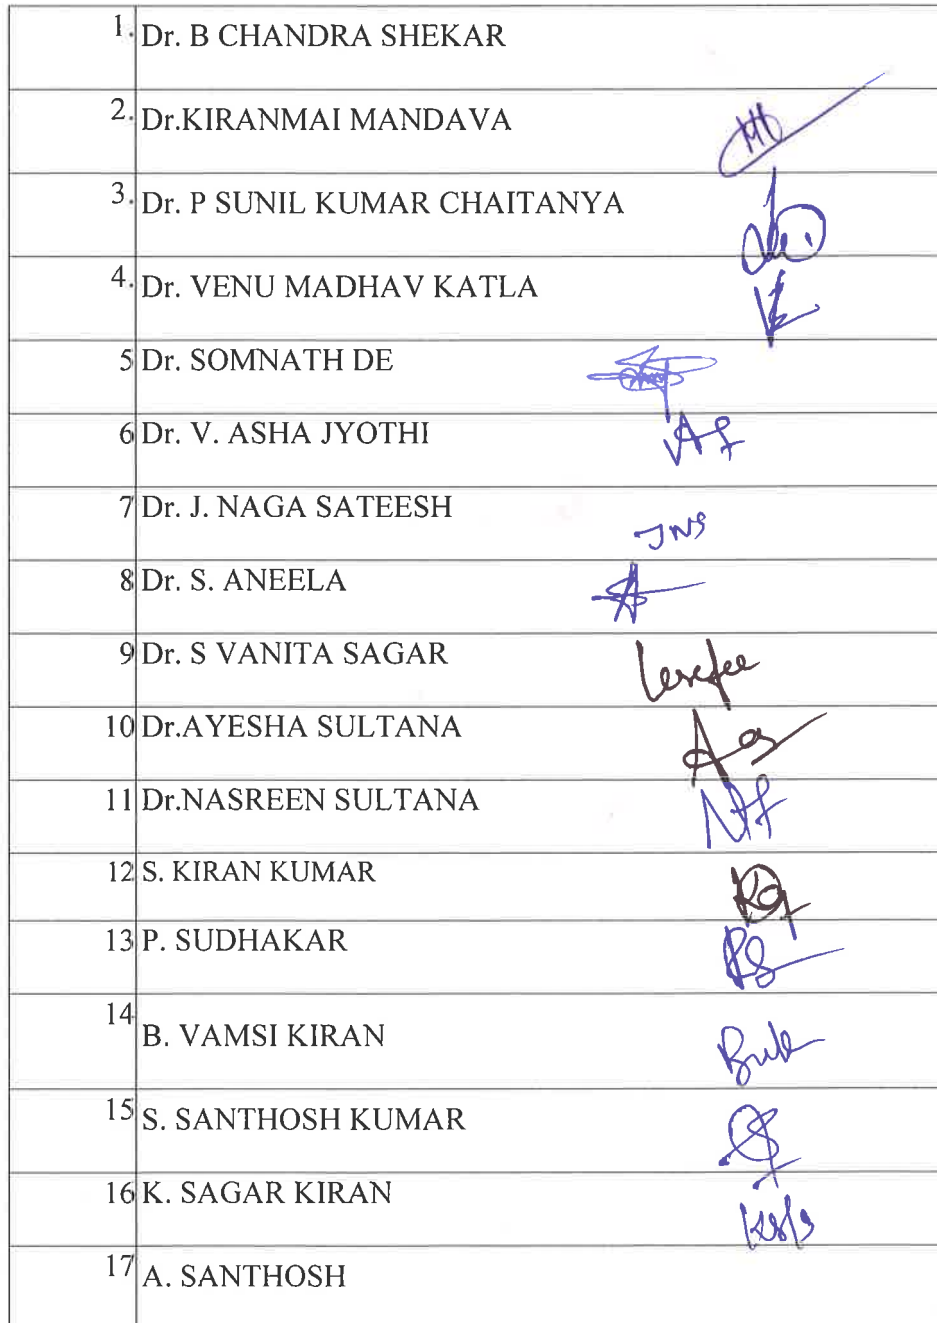 1. Dr. B CHANDRA SHEKAR
2. Dr.KIRANMAI MANDAVA
3. Dr. P SUNIL KUMAR CHAITANYA
4. Dr. VENU MADHAV KATLA
5 Dr. SOMNATH DE
6 Dr. V. ASHA JYOTHI
7 Dr. J. NAGA SATEESH
JNS
8 Dr. S. ANEELA
9 Dr. S VANITA SAGAR
10 Dr.AYESHA SULTANA
11 Dr.NASREEN SULTANA
12 S. KIRAN KUMAR
13 P. SUDHAKAR
14 B. VAMSI KIRAN
15 S. SANTHOSH KUMAR
16 K. SAGAR KIRAN
17 A. SANTHOSH